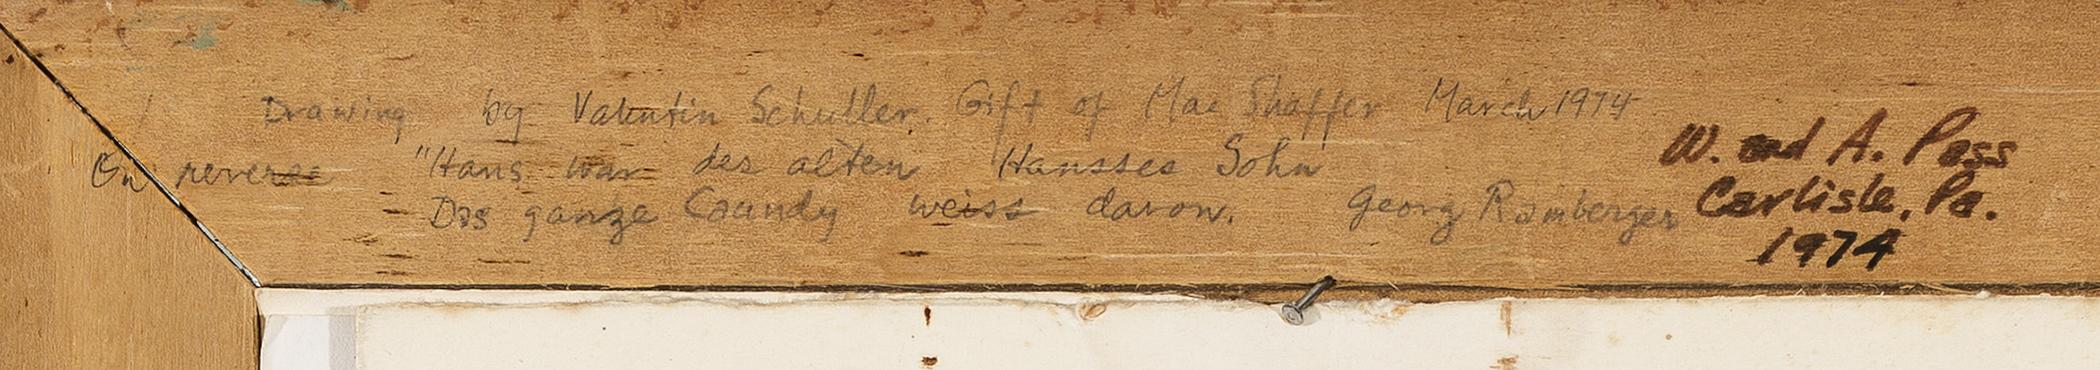 Drawing by Valentin Schuller. Gift of Mae Shaffer March 1974
On reverse "Hans war des alten Hansses Sohn
Das ganze Caundy weiss davon. Georg Ramberger
W. and A. Pass
Carlisle, Pa.
1974